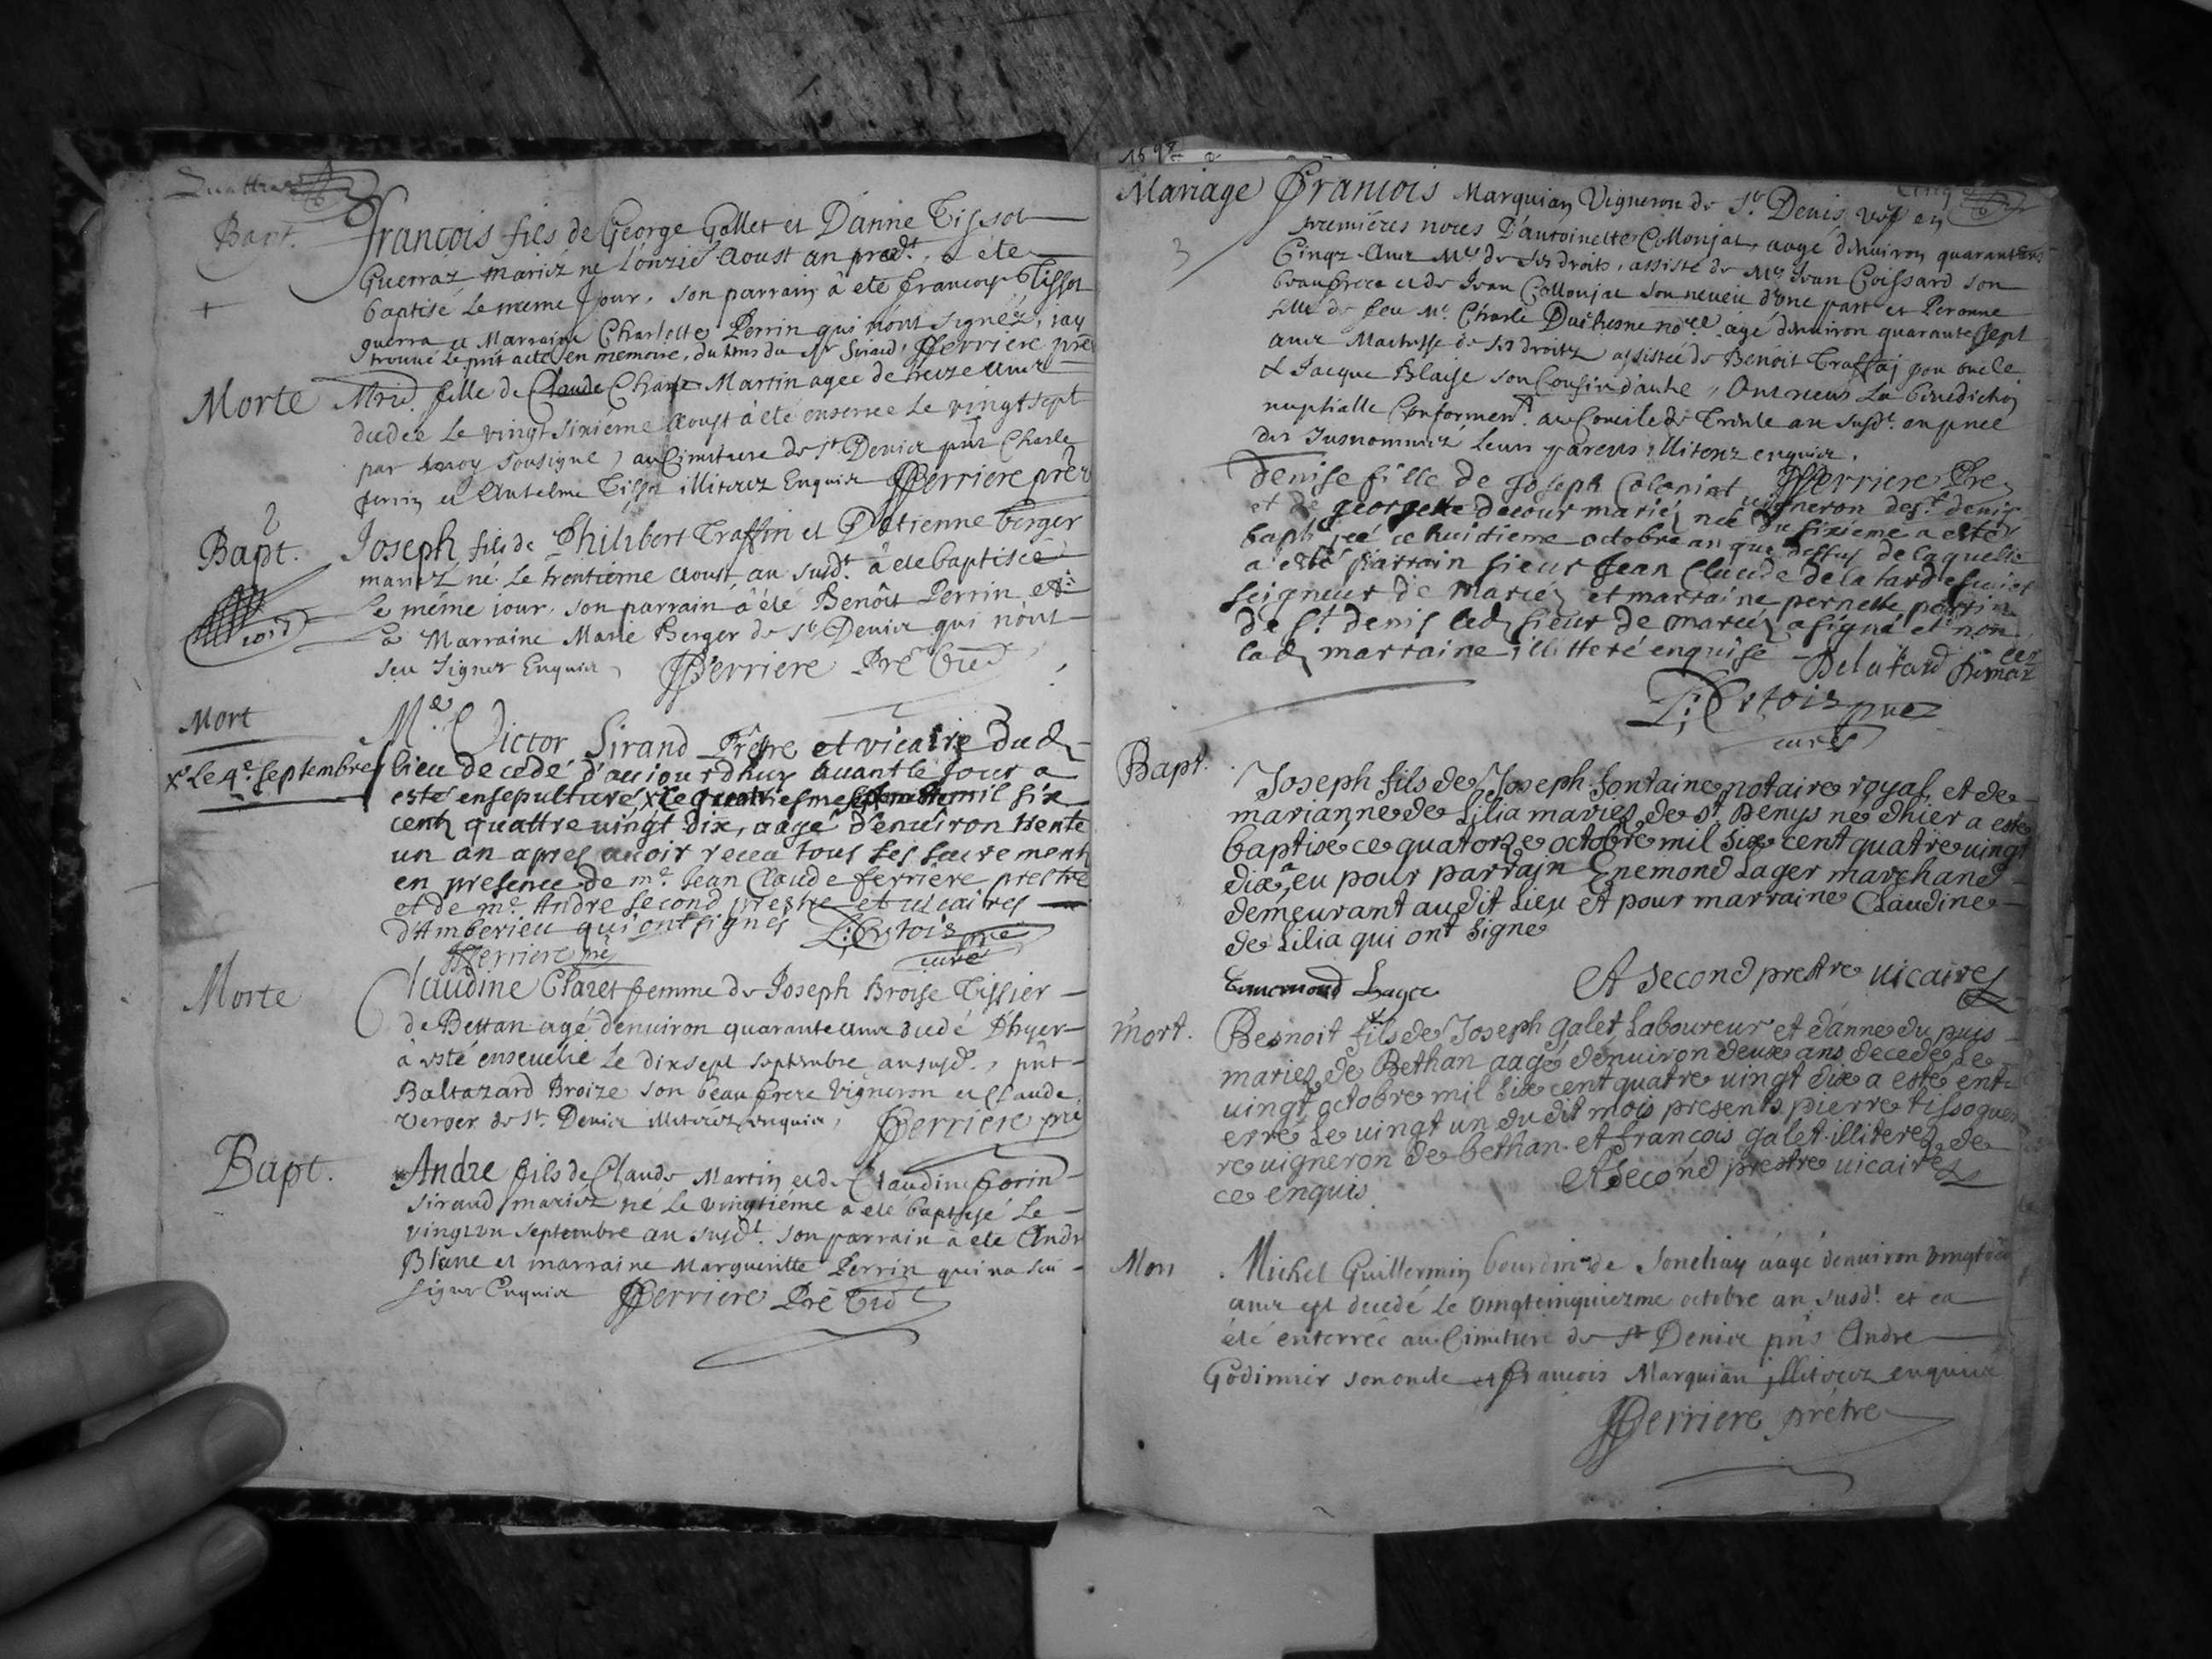 Quattre
Bapt.
François fils de George Gallet et D'anne Tissot
Guerraz mariéz né l'onzié Aoust an préd.t, a été
baptisé le meme jour, son parrain à eté francois Tissot
guerra et Marraine Charlotte Perrin qui nont signéz, iay
trouué le pnt acte en memoire, du tems du Sr Siraud, JFerriere pre
Morte
fille de Claude Charle Martin agee de treize
dcédée le vingt sixiéme Aoust à été enserree le vingt sept
par moy sousigné, au Cimitiere de St Denis pnt Charle
perrin et Antelme Tissot illiterez Enquis JFerriere prêt
2
Bapt.
Joseph fils de Philibert Traffin et D'etienne berger
mariéz né le trentiéme Aoust an susd.t à eté baptisée
le méme iour, son parrain à été Benôit Perrin et
la Marraine Marie Berger de St Denis qui nont
seu signer Enquis, JFerriere Prê
Mort
M.e Victor Sirand Prêtre et vicaire Dud
X Le 4.e Septembre
lieu decedé d'auiourdhuy auant le Jour a
esté ensepulturé, X mil six
cent quattre uingt dix, aagé d'enuiron trente
un an apres auoir receu tous ses sacrements
en presence de m.e Jean Claude ferriere prestre
et de m.e Andre second prestre et uicaires
d'Amberieu qui ont signés
JFerriere pre curé
Morte
Claudine Claret femme de Joseph Broise Tissier
de Bettan agé denuiron quarante ans dcedé D'hyer
à esté enseuelié le dixsept septembre an susd.t, pnt
Baltazard Broize son beau frere Vigneron et Claude
Verger de St. Denis illiteréz enquis, JFerriere pre
Bapt.
Andre fils de Claude Martin et de Claudine
Siraud mariéz né le vingtiéme a eté baptisé le
vingt un Septembre an susd.t son parrain à eté Andr
Blanc et marraine Margueritte Perrin qui na seu
signer Enquis JFerriere Prê
Cinq
Mariage
François Marquian Vigneron de St Denis vef en
premiéres noces D'antoinette Collonjat, aagé d'enuiron quarante
3
Cinqz Ans Mt de ses droits, assisté de Me Jean Coissard son
beaufrere et de Jean Collonjat son neueu d'une part et Peronne
fille de feu Me. Charle Duchesne no.re agé denuiron quarante sept
ans Maitresse de ses droitz assistée de Benoit son oncle
& Jacque Blaise son Cousin d'autre, Ont receu La benediction
nuptialle Conformem.t au Concile de Trente an susd.t en pnce
des susnommez leurs parens illiterez enquis.
JFerriere Pre
Denise fille de Joseph Coloniat uigneron de st denis
et de georgette decour mariez née du sixieme a esté
baptisée ce huitieme octobre an que dessus de laquelle
a esté parrain sieur Jean Claude de la tard escuier
seigneur de Mariez et marraine pernette perrin
de st denis led sieur de mariez a signé et non
lad marraine illitteré enquise
Delatard
curés
Bapt.
Joseph fils de Joseph fontaine notaire royal et de
marianne de Lilia mariez de st Denys né dhier a esté
baptisé ce quatorze octobre mil six cent quatre uingt
dix, a eu pour parrain Enemond Lager marchand
demeurant audit Lieu et pour marraine Claudine
de Lilia qui ont signe
A second prestre uicaire
mort.
Besnoit fils de Joseph galet Laboureur et d'anne du puis
mariez de Bethan aagé denuiron deux ans decede Le
uingt octobre mil six cent quatre uingt dix a esté ent
erré Le uingt un du dit mois presents pierre tissoguer
re uigneron de bethan et françois galet illiterez de
ce enquis
A second prestre uicaire
Michel Guillermin de aagé denuiron
ans est decedé le vingtcinquiezme octobre an susd.t et ea
été enterreé au Cimitiere de St Denis pns Andre
Godimier son oncle et francois Marquian illiterez enquis
JFerriere prêtre